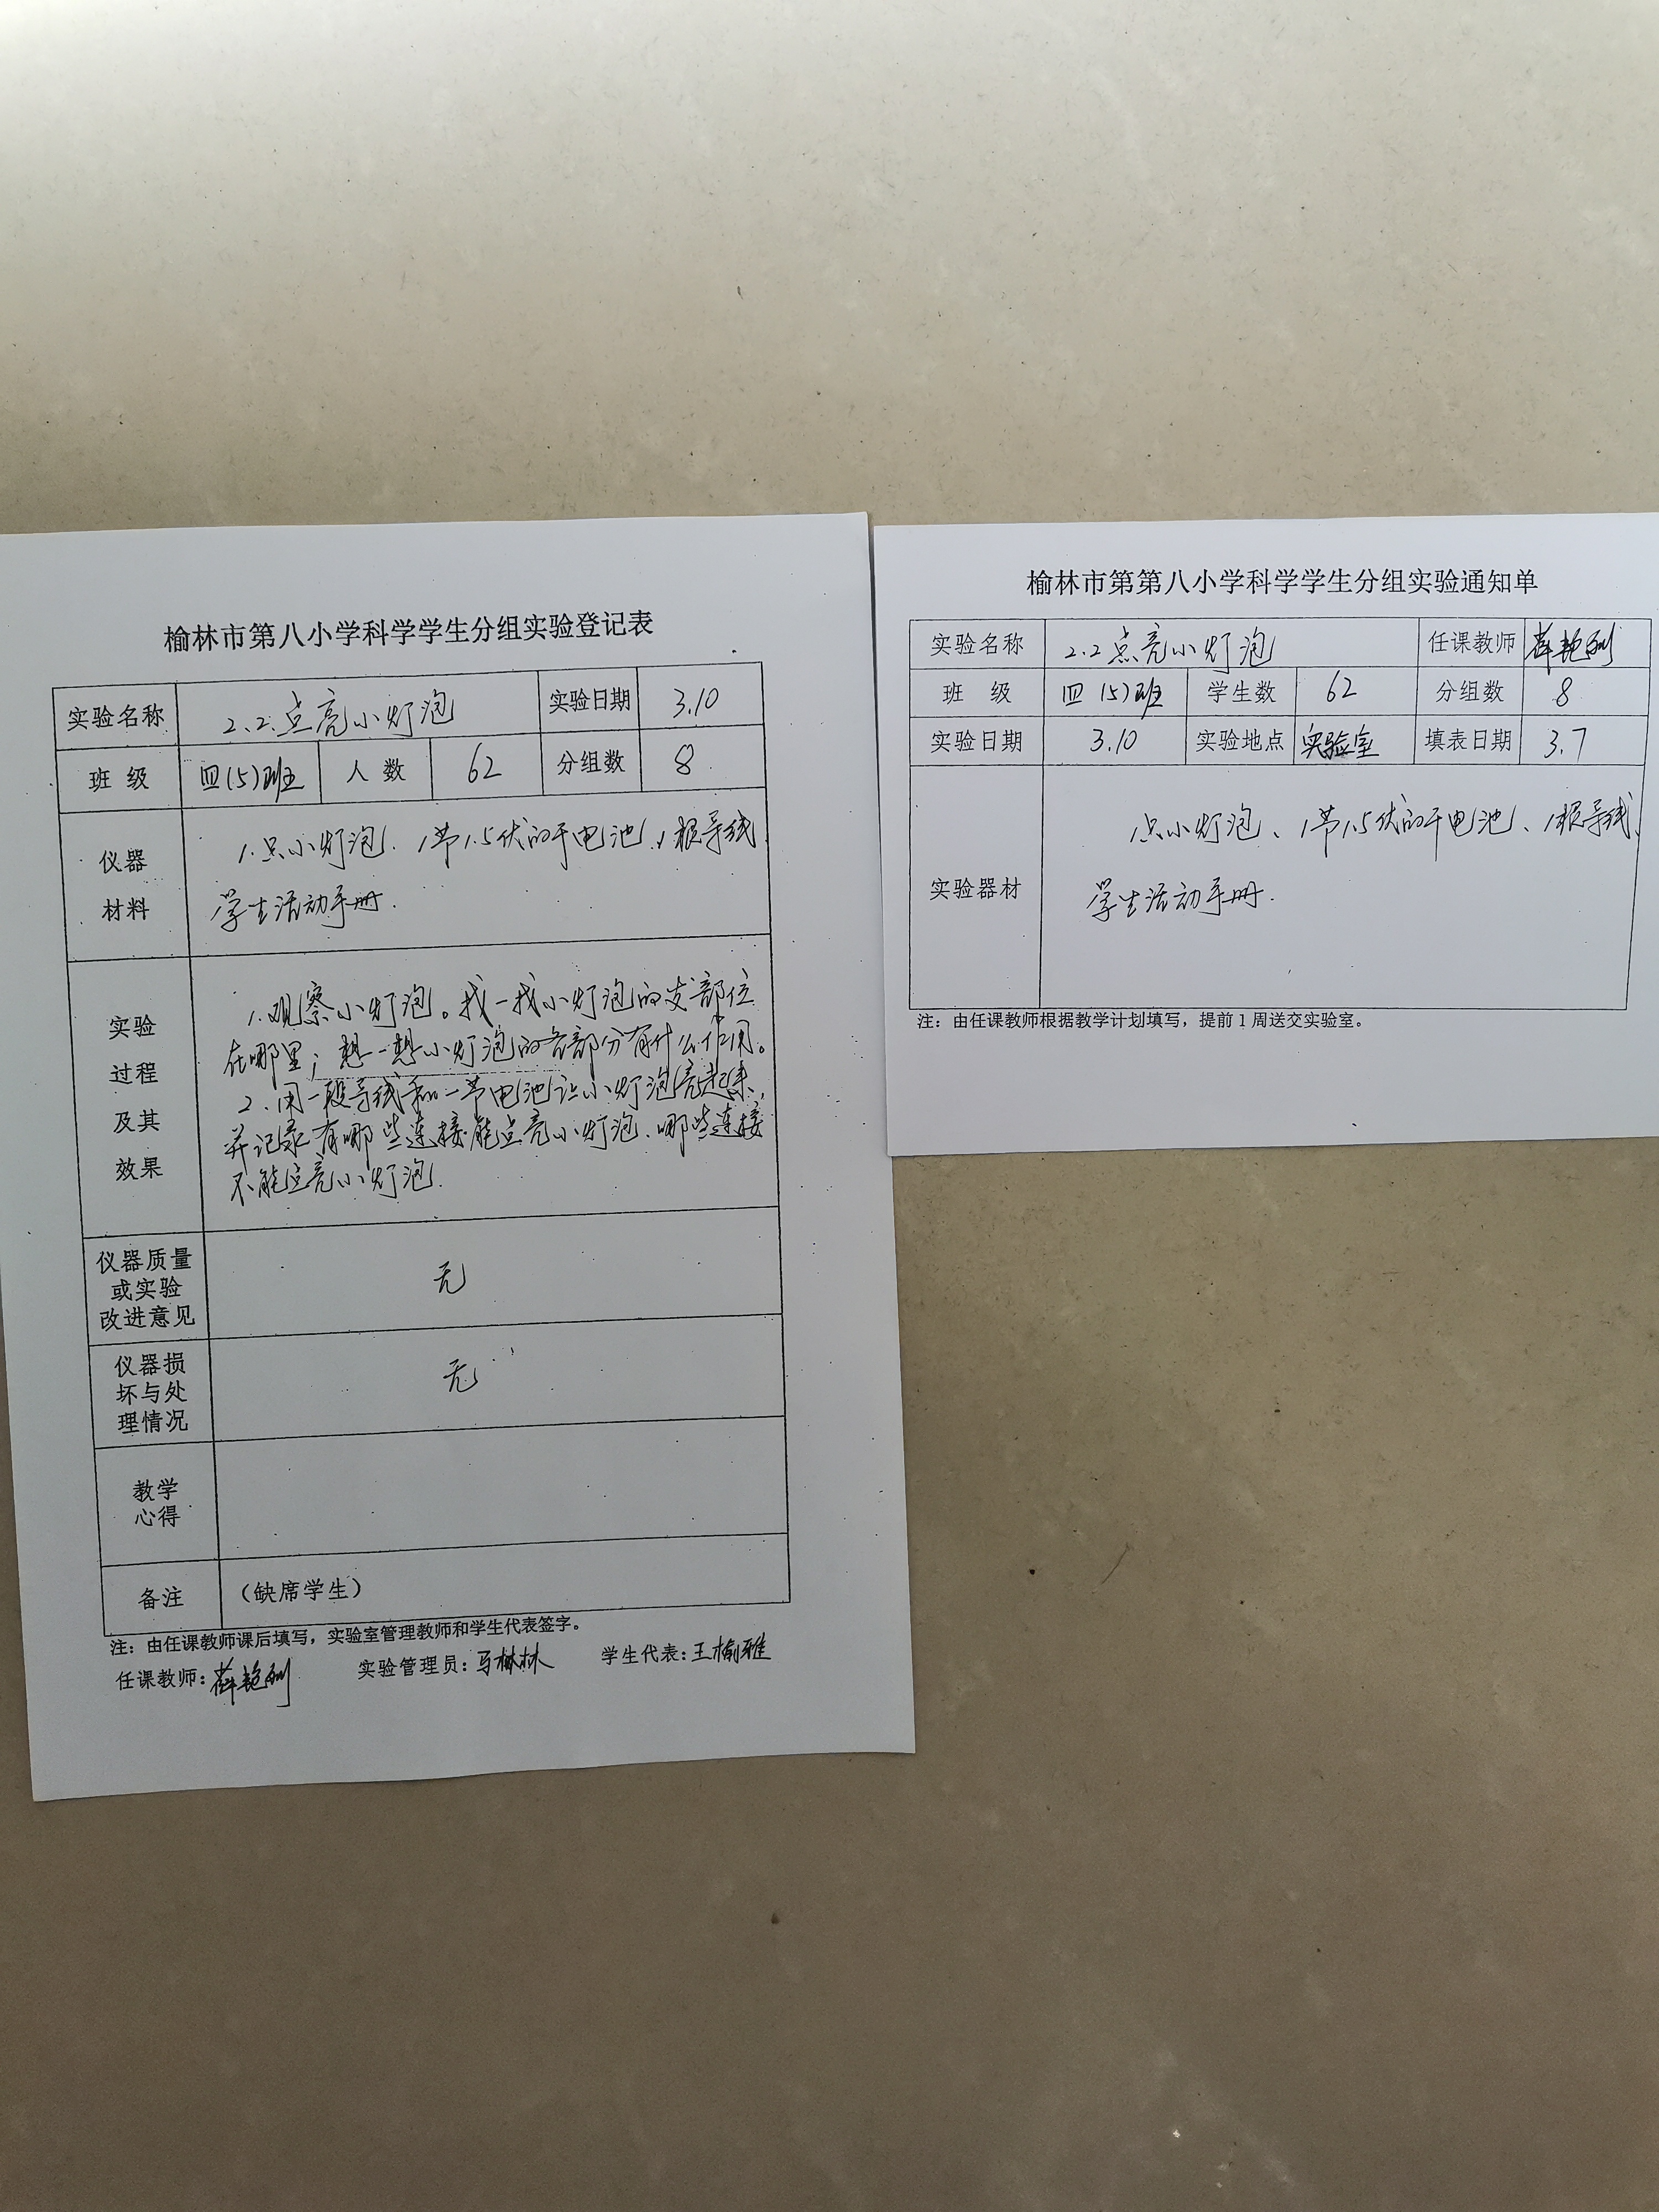 榆林市第八小学科学学生分组实验登记表
实验名称 2.2.点亮小灯泡 实验日期 3.10
班 级 四(5)班 人 数 62 分组数 8
仪器 材料 1.只小灯泡、1节1.5伏的干电池、1根导线
学生活动手册.
实验 过程 及其 效果
1.观察小灯泡。找一找小灯泡的支部位
在哪里;想一想小灯泡的各部分有什么作用。
2.用一段导线和一节电池让小灯泡亮起来,
并记录有哪些连接能点亮小灯泡、哪些连接
不能点亮小灯泡.
仪器质量 或实验 改进意见 无
仪器损 坏与处 理情况 无
教学 心得
备注 (缺席学生)
注:由任课教师课后填写,实验室管理教师和学生代表签字。
任课教师:薛艳 实验管理员:马林林 学生代表:王榆雅
榆林市第第八小学科学学生分组实验通知单
实验名称 2.2点亮小灯泡 任课教师 薛艳
班 级 四(5)班 学生数 62 分组数 8
实验日期 3.10 实验地点 实验室 填表日期 3.7
实验器材 小灯泡、1节1.5伏的干电池、1根导线、
学生活动手册.
注:由任课教师根据教学计划填写,提前1周送交实验室。